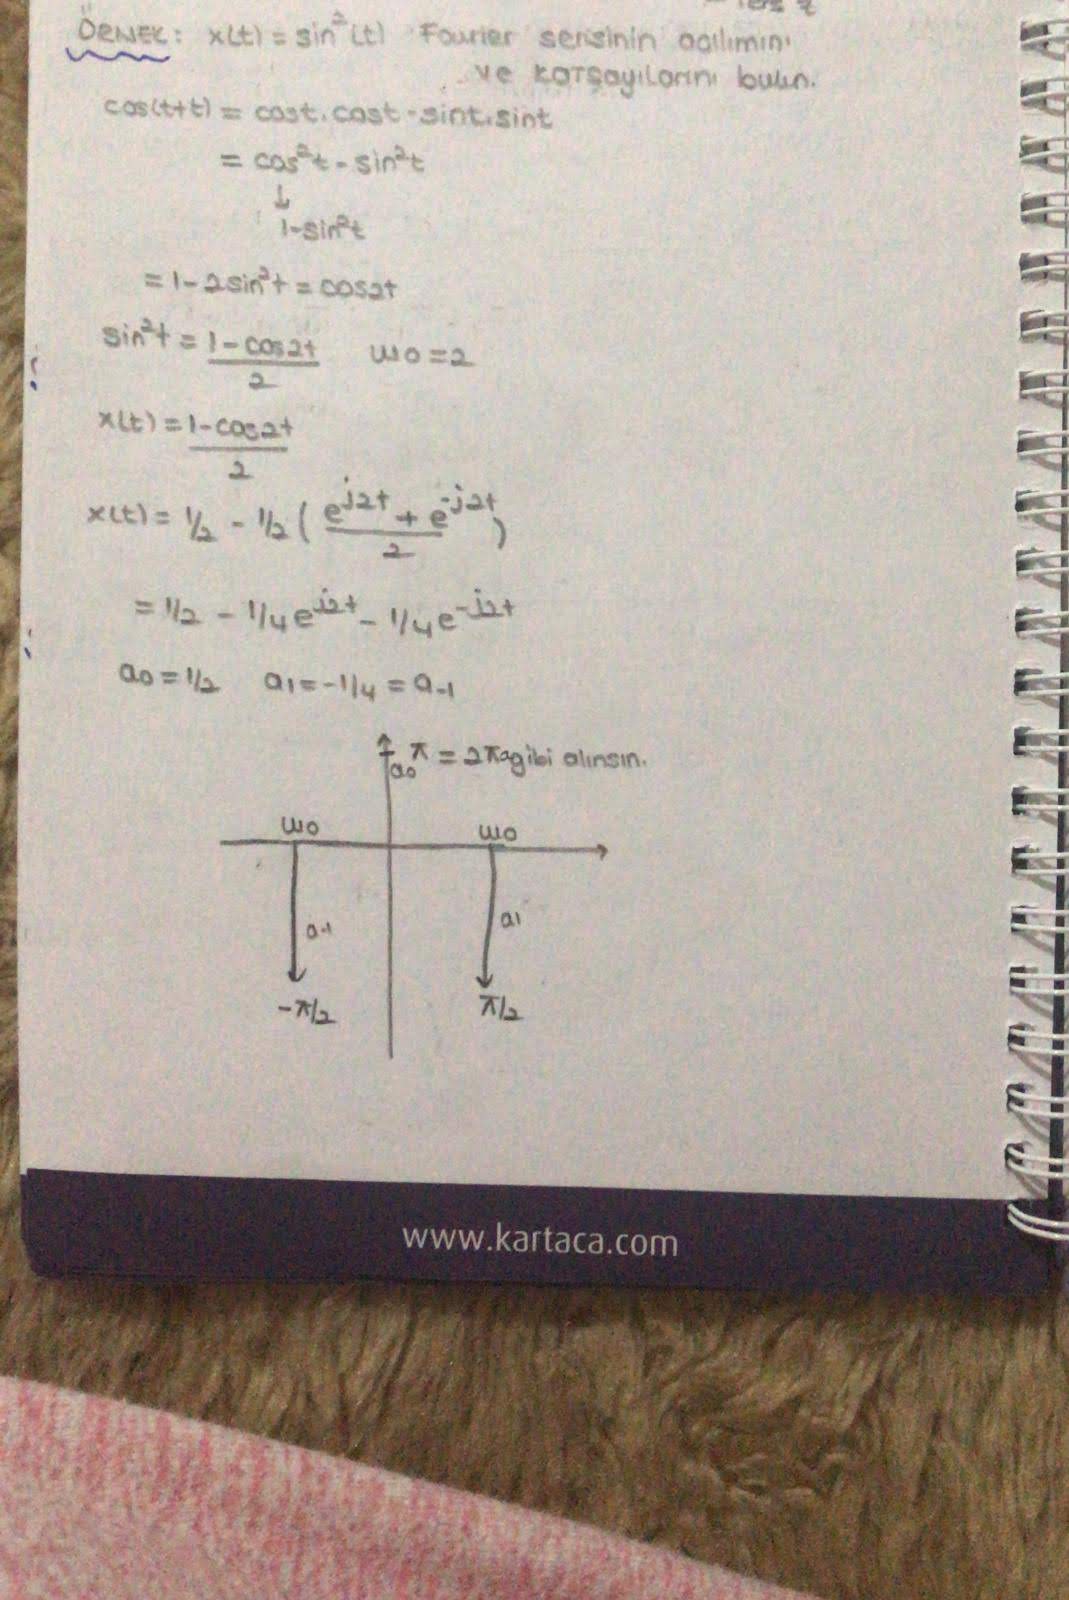 ÖRNEK: x(t) = sin²(t) Fourier serisinin açılımını
ve katsayılarını bulun.
cos(t+t) = cost.cost - sint.sint
= cos²t - sin²t
↓
1-sin²t
= 1 - 2sin²t = cos2t
sin²t = (1-cos2t)/2 ωo=2
x(t) = (1-cos2t)/2
x(t) = 1/2 - 1/2 ( (e^j2t + e^-j2t)/2 )
= 1/2 - 1/4 e^j2t - 1/4 e^-j2t
a0 = 1/2 a1 = -1/4 = a-1
π = 2πa0 gibi alınsın.
a0
ωo ωo
a-1 a1
-π/2 π/2
www.kartaca.com